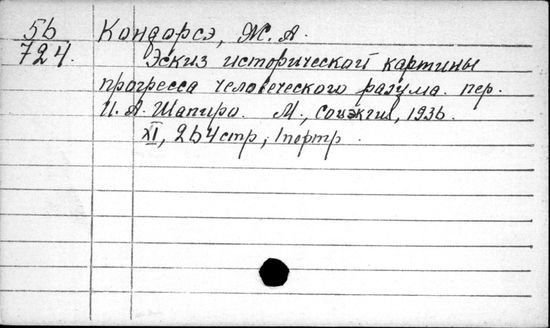 56
724.
Кондорсэ, Ж. А.
Эскиз исторической картины
прогресса человеческого разума. пер.
И. А. Шапиро. М., Соцэкгиз, 1936.
XI, 264 стр, 1 портр.